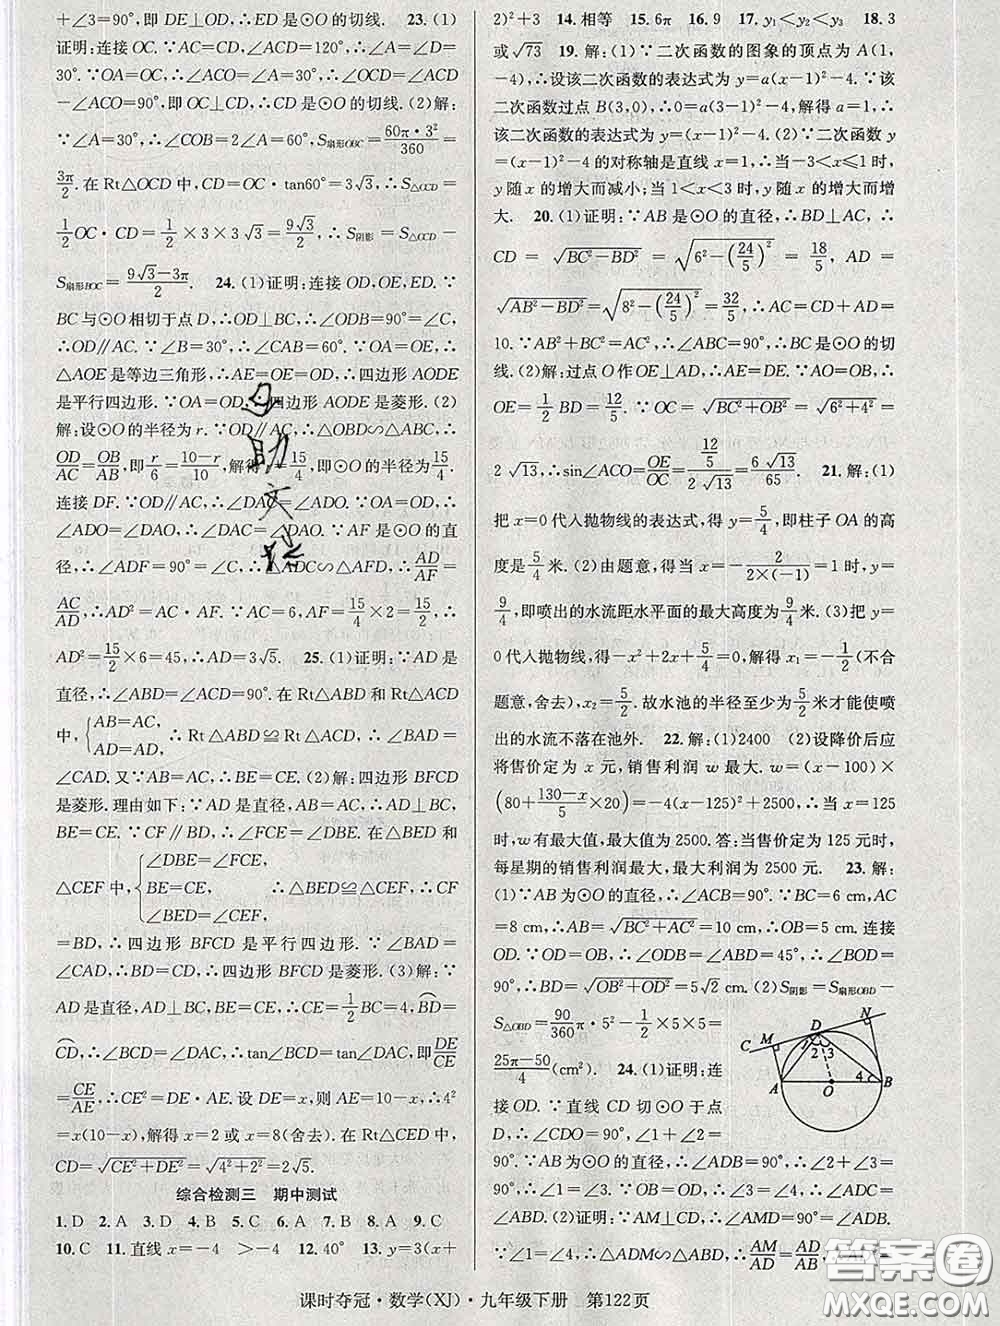 +∠ADE=90°，即 DE⊥OD，∴ED 是⊙O 的切线.  23.(1)
证明：连接 OC.∵AC=CD，∠ACD=120°，∴∠A=∠D=
30°.∵OA=OC，∴∠ACO=∠A=30°，∴∠OCD=∠ACD
-∠ACO=90°，即 OC⊥CD，∴CD 是⊙O 的切线.(2)解：
∵∠A=30°，∴∠COB=2∠A=60°，S扇形OBC=60π·3²/360=
3π/2. 在 Rt△OCD 中，CD=OC·tan60°=3√3，∴S△OCD=
1/2 OC·CD=1/2×3×3√3=9√3/2，∴S阴影=S△OCD-
S扇形BOC=(9√3-3π)/2.  24.(1)证明：连接 OD，OE，ED.∵
BC 与⊙O 相切于点 D，∴OD⊥BC，∴∠ODB=90°=∠C，
∴OD∥AC.∵∠B=30°，∴∠CAB=60°.∵OA=OE，∴
△AOE 是等边三角形，∴AE=OE=OD，∴四边形 AODE
是平行四边形.∵OA=OD，∴四边形 AODE 是菱形.(2)
解：设⊙O 的半径为 r.∵OD∥AC，∴△OBD∽△ABC，∴
OD/AC=OB/AB，即 r/6=(10-r)/10，解得 r=15/4，即⊙O 的半径为 15/4.
连接 DF.∵OD∥AC，∴∠DAC=∠ADO.∵OA=OD，∴
∠ADO=∠DAO，∴∠DAC=∠DAO.∵AF 是⊙O 的直
径，∴∠ADF=90°=∠C，∴△ADC∽△AFD，∴AD/AF=
AC/AD，∴AD²=AC·AF.∵AC=6，AF=15/4×2=15/2，∴
AD²=15/2×6=45，∴AD=3√5.  25.(1)证明：∵AD 是
直径，∴∠ABD=∠ACD=90°. 在 Rt△ABD 和 Rt△ACD
中，{AB=AC， AD=AD， ∴Rt△ABD≌Rt△ACD，∴∠BAD=
∠CAD. 又∵AB=AC，∴BE=CE.(2)解：四边形 BFCD
是菱形. 理由如下：∵AD 是直径，AB=AC，∴AD⊥BC，
BE=CE.∵CF∥BD，∴∠FCE=∠DBE. 在△BED 和
△CEF 中，{∠DBE=∠FCE， BE=CE， ∠BED=∠CEF， ∴△BED≌△CEF，∴CF
=BD，∴四边形 BFCD 是平行四边形.∵∠BAD=
∠CAD，∴BD=CD，∴四边形 BFCD 是菱形.(3)解：∵
AD 是直径，AD⊥BC，BE=CE，∴CE=1/2 BC=4，BD=
CD，∴∠BCD=∠DAC，∴tan∠BCD=tan∠DAC，即 DE/CE=
CE/AE，∴CE²=DE·AE. 设 DE=x，则 AE=10-x，∴4²
=x(10-x)，解得 x=2 或 x=8(舍去). 在 Rt△CED 中，
CD=√(CE²+DE²)=√(4²+2²)=2√5.
综合检测三　期中测试
1.D  2.A  3.D  4.B  5.C  6.A  7.B  8.A  9.C
10.C  11.直线 x=-4　>-4  12.40°  13.y=3(x+
2)²+3  14.相等  15.6π  16.9  17.y₁<y₂<y₃  18.3
或√73  19.解：(1)∵二次函数的图象的顶点为 A(1，
-4)，∴设该二次函数的表达式为 y=a(x-1)²-4.∵该
二次函数过点 B(3,0)，∴0=a(3-1)²-4，解得 a=1，∴
该二次函数的表达式为 y=(x-1)²-4.(2)∵二次函数 y
=(x-1)²-4 的对称轴是直线 x=1，∴当-3<x≤1 时，
y 随 x 的增大而减小；当 1<x<3 时，y 随 x 的增大而增
大.  20.(1)证明：∵AB 是⊙O 的直径，∴BD⊥AC，∴
CD=√(BC²-BD²)=√(6²-(24/5)²)=18/5，AD=
√(AB²-BD²)=√(8²-(24/5)²)=32/5，∴AC=CD+AD=
10.∵AB²+BC²=AC²，∴∠ABC=90°，∴BC 是⊙O 的切
线.(2)解：过点 O 作 OE⊥AD，∴AE=DE.∵AO=OB，∴
OE=1/2 BD=12/5.∵OC=√(BC²+OB²)=√(6²+4²)=
2√13，∴sin∠ACO=OE/OC=(12/5)/(2√13)=6√13/65.  21.解：(1)
把 x=0 代入抛物线的表达式，得 y=5/4，即柱子 OA 的高
度是 5/4 米.(2)由题意，得当 x=-2/(2×(-1))=1 时，y=
9/4，即喷出的水流距水平面的最大高度为 9/4 米.(3)把 y=
0 代入抛物线，得-x²+2x+5/4=0，解得 x₁=-1/2(不合
题意，舍去)，x₂=5/2. 故水池的半径至少为 5/2 米才能使喷
出的水流不落在池外.  22.解：(1)2400  (2)设降价后应
将售价定为 x 元，销售利润 w 最大. w=(x-100)×
(80+(130-x)/5×20)=-4(x-125)²+2500，∴当 x=125
时，w 有最大值，最大值为 2500. 答：当售价定为 125 元时，
每星期的销售利润最大，最大利润为 2500 元.  23.解：
(1)∵AB 为⊙O 的直径，∴∠ACB=90°.∵BC=6 cm，AC
=8 cm，∴AB=√(BC²+AC²)=10 cm，∴OB=5 cm. 连接
OD.∵OD=OB，∴∠ODB=∠ABD=45°，∴∠BOD=
90°，∴BD=√(OB²+OD²)=5√2 cm.(2)S阴影=S扇形OBD-
S△OBD=90/360 π·5²-1/2×5×5=
(25π-50)/4(cm²).  24.(1)证明：连
接 OD.∵直线 CD 切⊙O 于点
D，∴∠CDO=90°，∴∠1+∠2=
90°.∵AB 为⊙O 的直径，∴∠ADB=90°，∴∠2+∠3=
90°，∴∠1=∠3.∵OB=OD，∴∠3=∠4，∴∠ADC=
∠ABD.(2)证明：∵AM⊥CD，∴∠AMD=90°=∠ADB.
∵∠1=∠4，∴△ADM∽△ABD，∴AM/AD=AD/AB，∴AD²
C M D N 1 2 3 4 A O B
课时夺冠·数学(XJ)·九年级下册　第122页
答案圈
MXQE.COM